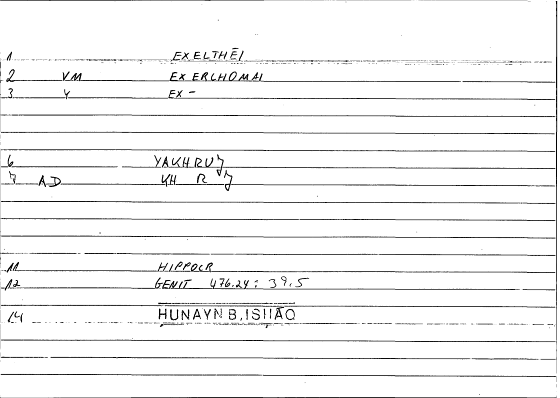 1 EXELTHĒI
2 VM EXERCHOMAI
3 Y EX-
6 YAKHRUǦ
7 AD KH R Ǧ
11 HIPPOCR
12 GENIT 476.24: 39.5
14 HUNAYN B. ISḤĀQ